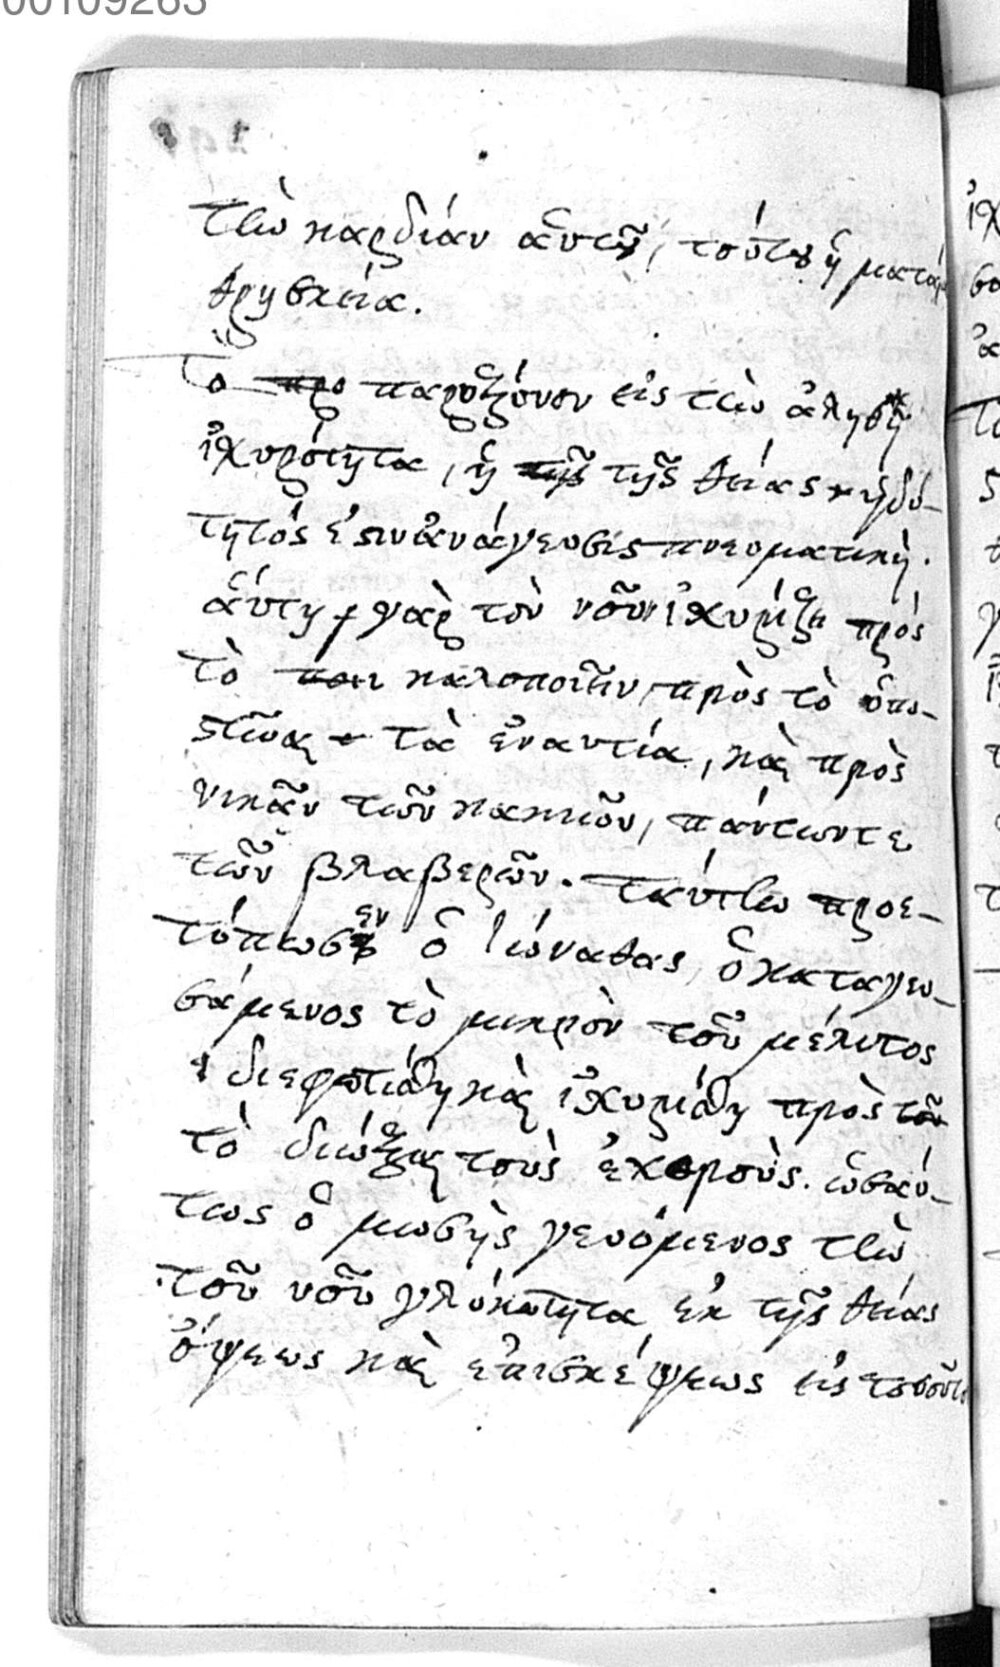 00109263
τὴν καρδίαν ἁυτοῦ, τούτου ἡ ματαία
θρησκεία.
Το προ παροξῦνον εἰς τὴν ἀληθῆ
ἰχυρότητα, ἡ τῆς τῆς θείας ηδύ-
τητός ἐστιν ἀνάγευσις πνευματικὴ.
ἁύτη γὰρ τὸν νοῦν ἰχυρίζει πρὸς
τὸ ποι καλοποιεῖν, πρὸς τὸ ὑπο-
στῆναι τὰ ἐναντία, καὶ πρὸς
νικᾶν τῶν κακιῶν, πάντων τε
τῶν βλαβερῶν. Ταύτην προε-
τύπωσεν ὁ Ἰώναθας, ὁ καταγευ-
σάμενος τὸ μικρὸν τοῦ μέλιτος
διεφωτίσθη καὶ ἰχυρίσθη πρὸς τοῦ
τὸ διώξαι τοὺς ἐχθροὺς. ὡσαύ-
τως ὁ μωσῆς γευόμενος τὴν
τοῦ νοῦ γλυκύτητα ἐκ τῆς θείας
ὄψεως καὶ ἐπισκέψεως εἰς τοσοῦτο